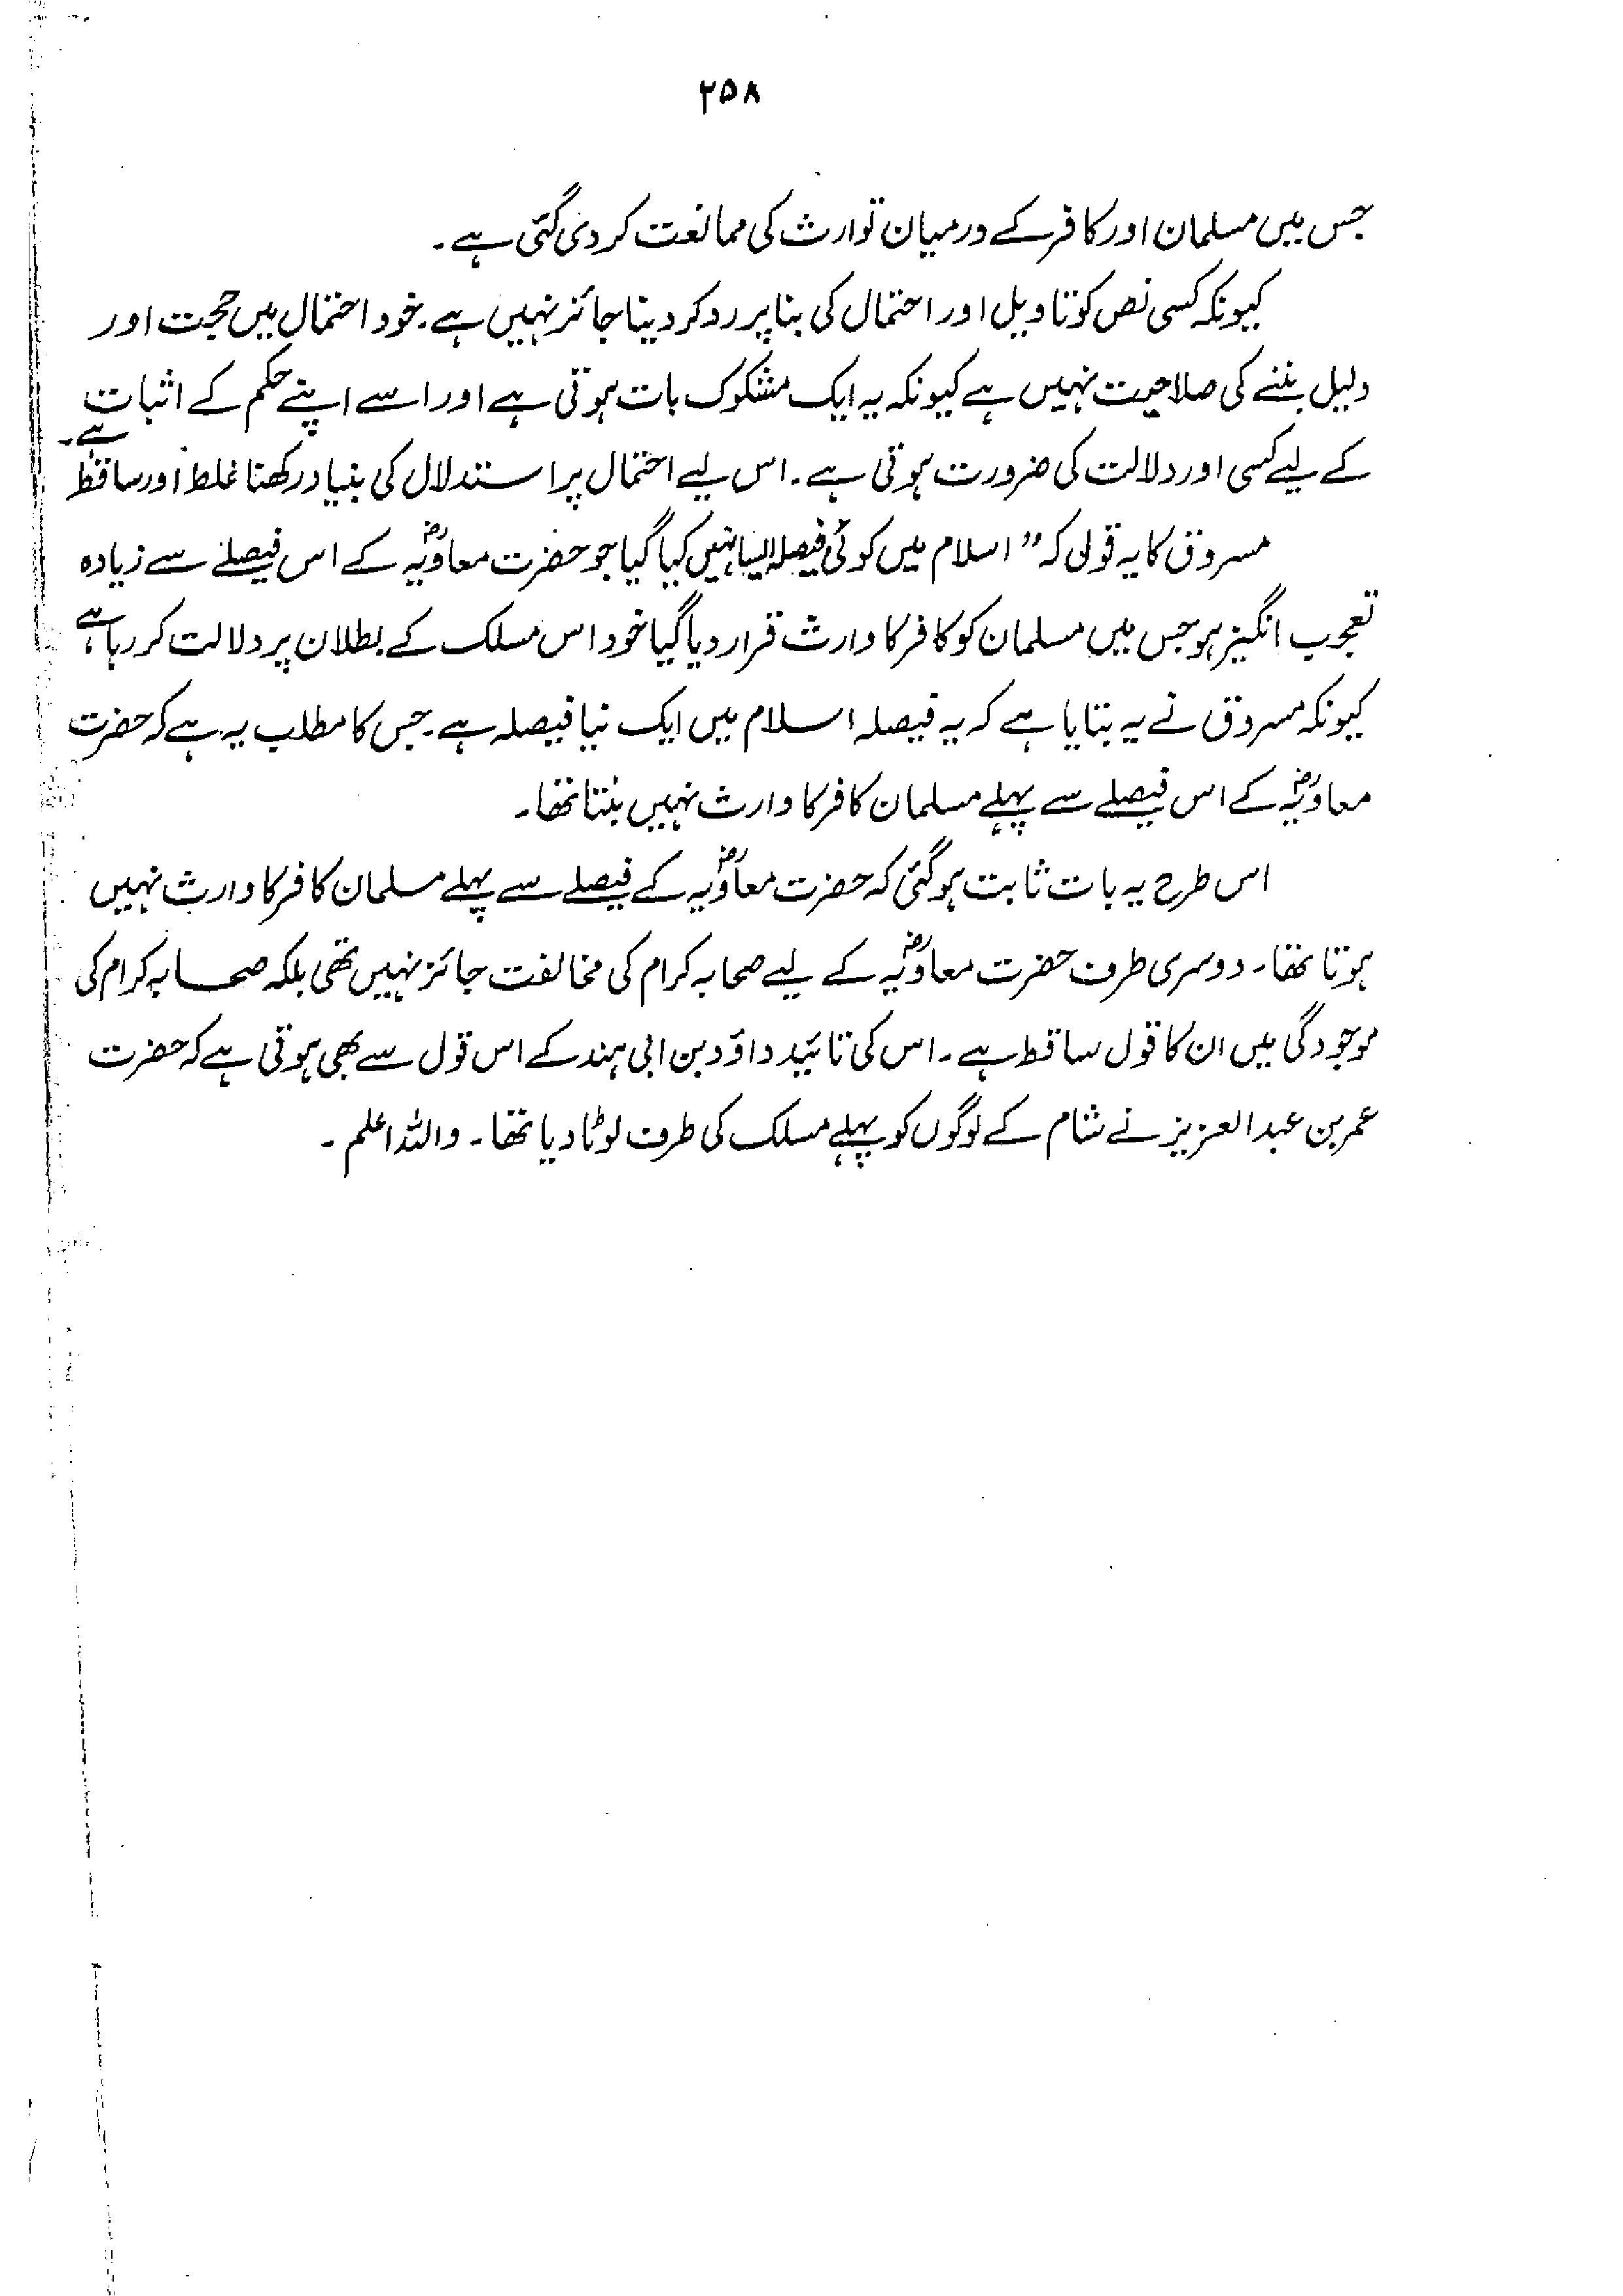 ۲۵۸
جس میں مسلمان اور کافر کے درمیان توارث کی ممانعت کر دی گئی ہے۔
کیونکہ کسی نص کو تاویل اور احتمال کی بنا پر رد کر دینا جائز نہیں ہے۔ خود احتمال میں حجت اور
دلیل بننے کی صلاحیت نہیں ہے کیونکہ یہ ایک مشکوک بات ہوتی ہے اور اسے اپنے حکم کے اثبات
کے لیے کسی اور دلالت کی ضرورت ہوتی ہے۔ اس لیے احتمال پر استدلال کی بنیاد رکھنا غلط اور ساقط ہے۔
مسروق کا یہ قول کہ ”اسلام میں کوئی فیصلہ ایسا نہیں کیا گیا جو حضرت معاویہؓ کے اس فیصلے سے زیادہ
تعجب انگیز ہو جس میں مسلمان کو کافر کا وارث قرار دیا گیا خود اس مسلک کے بطلان پر دلالت کر رہا ہے
کیونکہ مسروق نے یہ بتایا ہے کہ یہ فیصلہ اسلام میں ایک نیا فیصلہ ہے۔ جس کا مطلب یہ ہے کہ حضرت
معاویہؓ کے اس فیصلے سے پہلے مسلمان کافر کا وارث نہیں بنتا تھا۔
اس طرح یہ بات ثابت ہو گئی کہ حضرت معاویہؓ کے فیصلے سے پہلے مسلمان کافر کا وارث نہیں
ہوتا تھا۔ دوسری طرف حضرت معاویہؓ کے لیے صحابہ کرام کی مخالفت جائز نہیں تھی بلکہ صحابہ کرام کی
موجودگی میں ان کا قول ساقط ہے۔ اس کی تائید داؤد بن ابی ہند کے اس قول سے بھی ہوتی ہے کہ حضرت
عمر بن عبدالعزیز نے شام کے لوگوں کو پہلے مسلک کی طرف لوٹا دیا تھا۔ واللہ اعلم۔